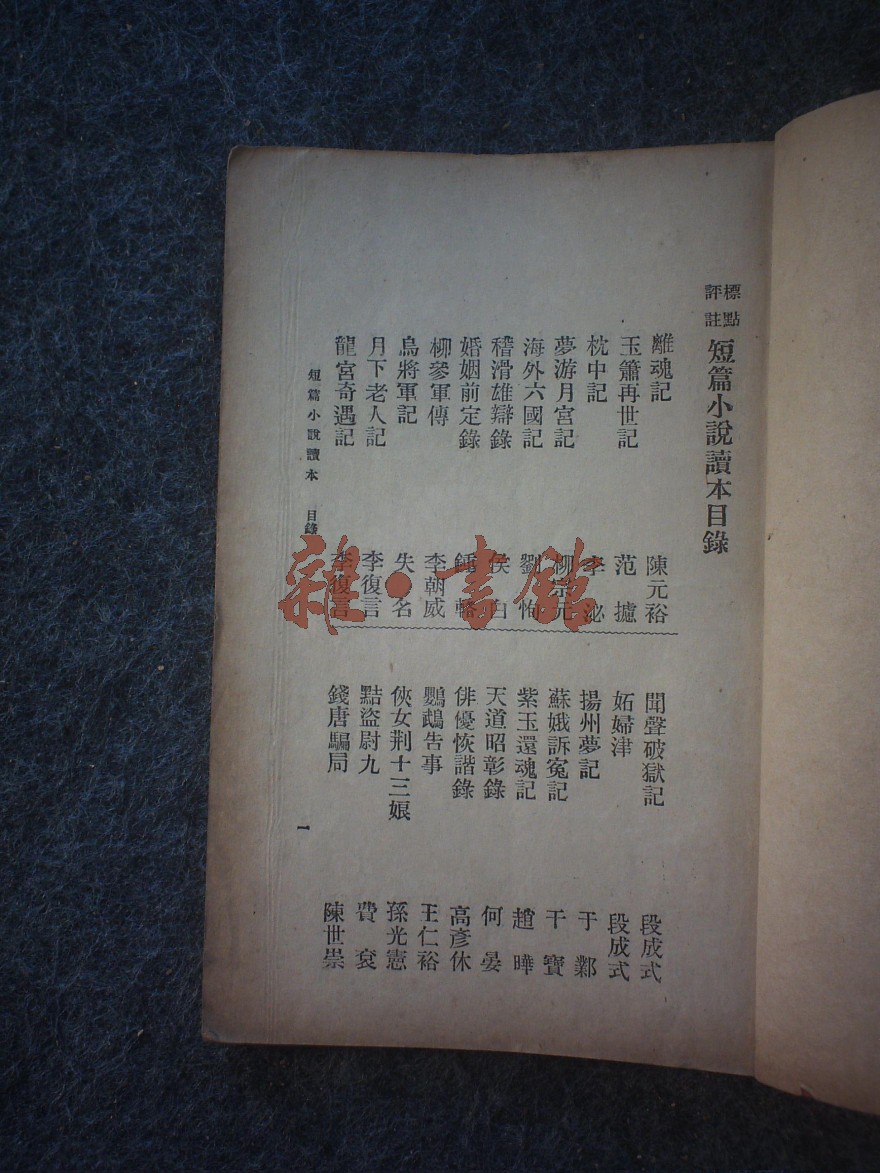 標點評註短篇小說讀本目錄
離魂記 陳元裕
玉簫再世記 范攄
枕中記 李泌
夢游月宮記 柳宗元
海外六國記 劉恂
稽滑雄辯錄 侯白
婚姻前定錄 鍾輅
柳參軍傳 李朝威
烏將軍記 失名
月下老人記 李復言
龍宮奇遇記 李復言
聞聲破獄記 段成式
妬婦津 段成式
揚州夢記 于鄴
蘇娥訴冤記 干寶
紫玉還魂記 趙曄
天道昭彰錄 何晏
俳優恢諧錄 高彥休
鸚鵡告事 王仁裕
俠女荆十三娘 孫光憲
黠盜尉九 費袞
錢唐騙局 陳世崇
短篇小說讀本 目錄 一
雜·書館